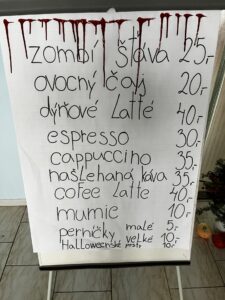 zombí šťáva 25,-
ovocný čaj 20,-
dýňové Latté 40,-
espresso 30,-
cappuccino 35,-
našlehaná káva 35,-
cofee latte 40,-
mumie 10,-
perníčky malé 5,-
velké 10,-
Halloweenské 10,-